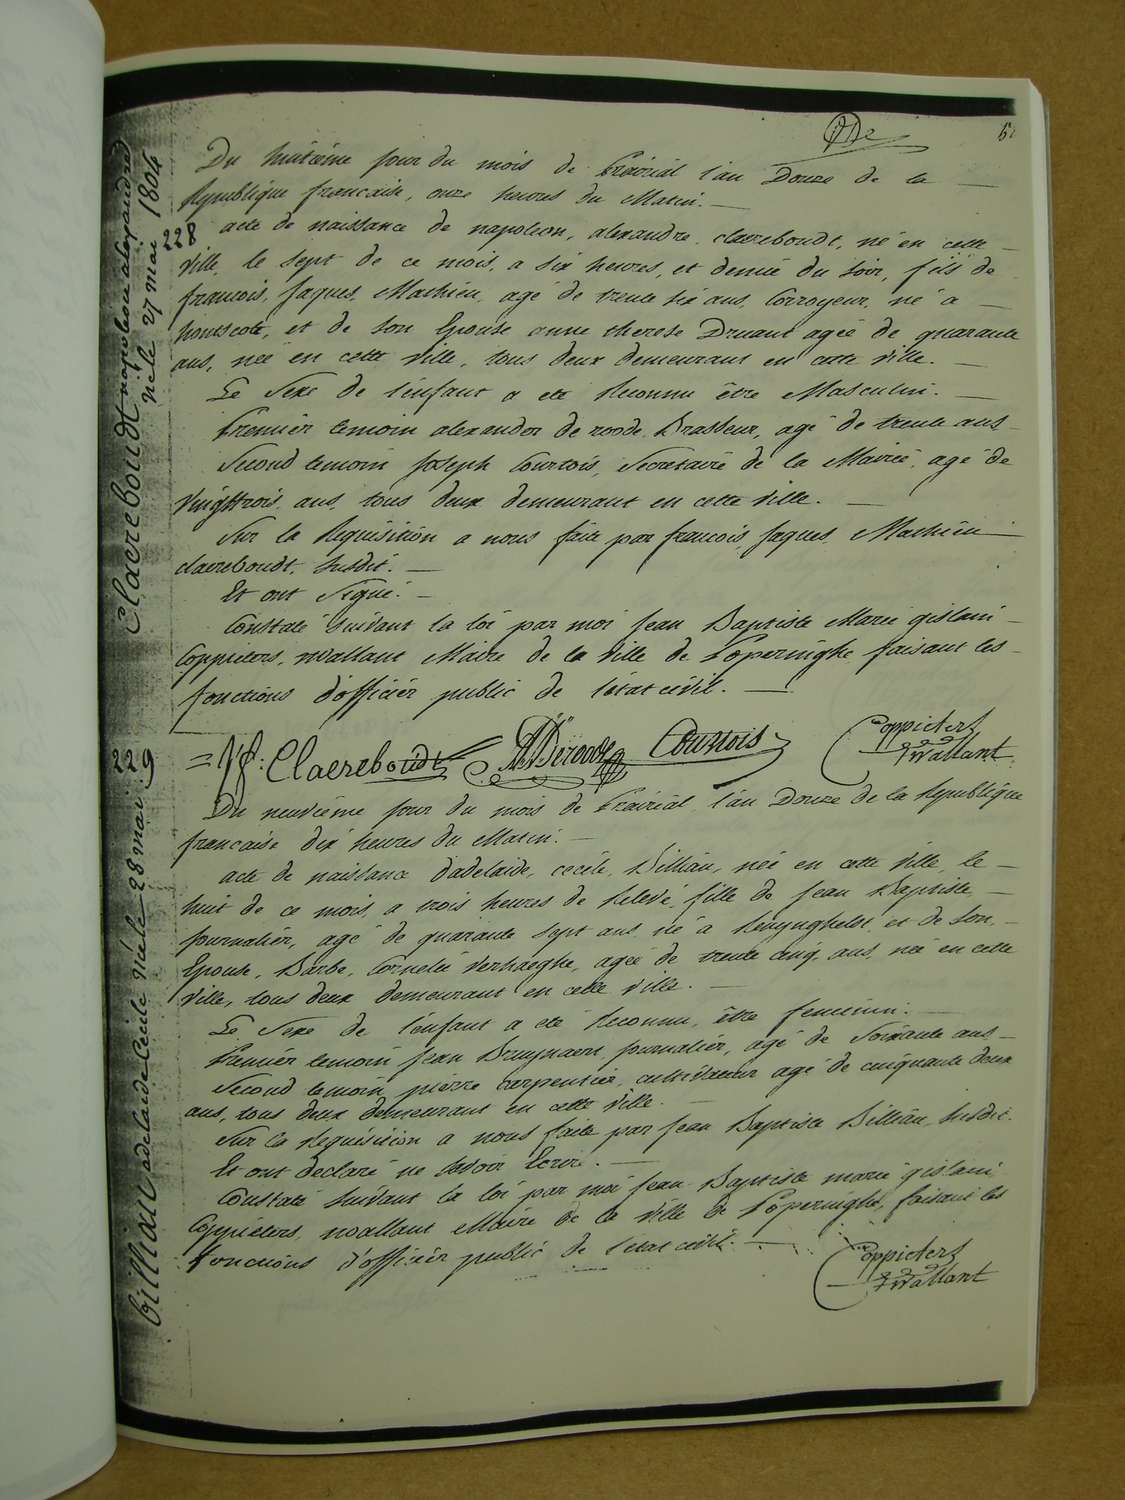 Du huitième jour du mois de Prairial l'an Douze de la
Republique francaise, onze heures du Matin.
acte de naissance de napoleon, alexandre, claereboudt, né en cette
ville, le sept de ce mois, a six heures, et demie du soir, fils de
francois, Jaques, Mathieu, agé de trente six ans, Corroyeur, né a
hontscote, et de son Epouse anne therese Druant agée de quarante
ans, née en cette ville, tous deux demeurant en cette ville.
Le Sexe de l'enfant a eté Reconnu être Masculin.
Premier temoin alexander de roode, Brasseur, agé de trente ans
Second temoin Joseph Courtois, Secretaire de la Mairie, agé de
vingttrois, ans, tous deux demeurant en cette ville.
Sur la Requisition a nous faite par francois, Jaques, Mathieu
claereboudt, Susdit.
Et ont Signé.
Constaté suivant la loi par moi Jean Baptiste Marie gislain
Coppieters, wallant Maire de la ville de Poperinghe faisant les
fonctions d'officier public de l'état civil.
Claereboudt napoleon alexandre
né le 27 mai 1804
228
= J f: Claereboudt ADeroode Courtois Coppieters
twallant
229
Du neuvième jour du mois de Prairial l'an Douze de la Republique
francaise dix heures du Matin.
acte de naissance d'adelaide, cecile, Billiau, née en cette ville, le
huit de ce mois, a trois heures de Relevé, fille de Jean Baptiste,
journalier, agé de quarante sept ans, né a Renynghelst, et de son
Epouse, Barbe, Cornelie Verhaeghe, agée de trente cinq ans, née en cette
ville, tous deux demeurant en cette ville.
Le Sexe de l'enfant a eté Reconnu, être feminin.
Premier temoin Jean Bruynaert, journalier, agé de Soixante ans
Second temoin pierre carpentier, cultivateur agé de cinquante deux
ans, tous deux demeurant en cette ville.
Sur la Requisition a nous faite par Jean Baptiste Billiau, Susdit.
Et ont declaré ne savoir Ecrire.
Constaté suivant la loi par moi Jean Baptiste marie gislain
Coppieters, wallant Maire de la ville de Poperinghe, faisant les
fonctions d'officier public de l'état civil.
billiau adelaide Cécile née le 28 mai
Coppieters
twallant